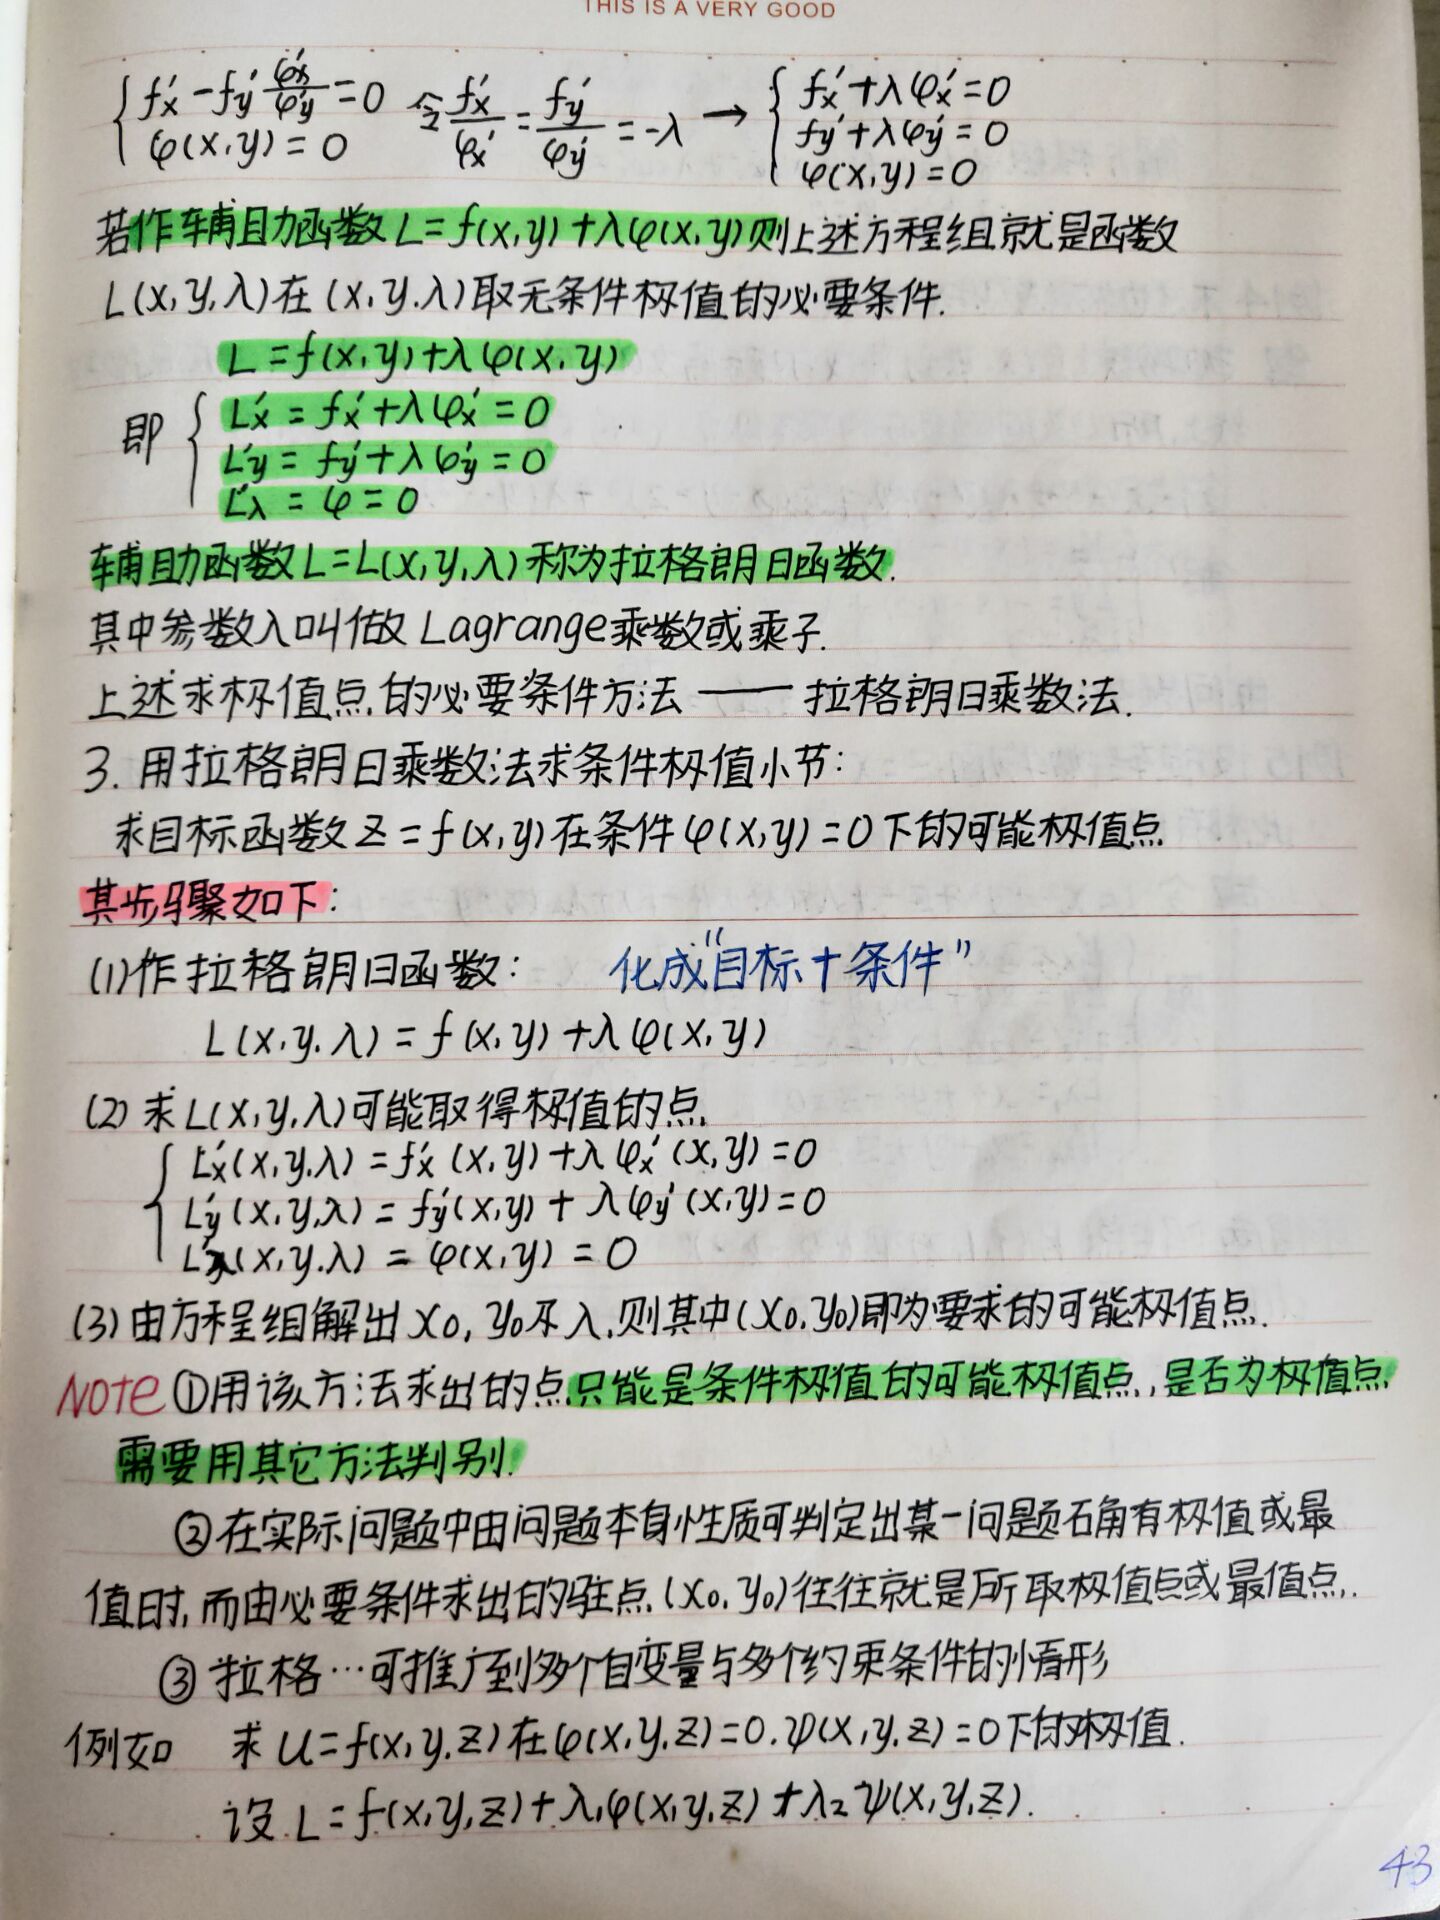 THIS IS A VERY GOOD
{ f'x - f'y φ'x/φ'y = 0 令 f'x/φ'x = f'y/φ'y = -λ → { f'x + λφ'x = 0
φ(x,y) = 0 f'y + λφ'y = 0
φ(x,y) = 0
若作辅助函数 L = f(x,y) + λφ(x,y) 则上述方程组就是函数
L(x,y,λ) 在 (x,y.λ) 取无条件极值的必要条件.
L = f(x,y) + λφ(x,y)
即 { L'x = f'x + λφ'x = 0
L'y = f'y + λφ'y = 0
L'λ = φ = 0
辅助函数 L = L(x,y,λ) 称为拉格朗日函数.
其中参数λ叫做 Lagrange乘数或乘子.
上述求极值点的必要条件方法 —— 拉格朗日乘数法.
3. 用拉格朗日乘数法求条件极值小节:
求目标函数 z = f(x,y) 在条件 φ(x,y) = 0 下的可能极值点
其步骤如下:
(1) 作拉格朗日函数: 化成“目标+条件”
L(x.y.λ) = f(x,y) + λφ(x,y)
(2) 求 L(x,y,λ) 可能取得极值的点.
{ L'x(x,y.λ) = f'x(x,y) + λφ'x(x,y) = 0
L'y(x,y,λ) = f'y(x,y) + λφ'y(x,y) = 0
L'λ(x,y.λ) = φ(x,y) = 0
(3) 由方程组解出 x₀, y₀及λ,则其中(x₀,y₀)即为要求的可能极值点.
NOTE ①用该方法求出的点只能是条件极值的可能极值点,是否为极值点
需要用其它方法判别.
②在实际问题中由问题本身性质可判定出某一问题确有极值或最
值时,而由必要条件求出的驻点(x₀,y₀)往往就是所取极值点或最值点.
③ 拉格…可推广到多个自变量与多个约束条件的情形
例如 求 u = f(x,y,z) 在 φ(x,y,z) = 0. ψ(x,y,z) = 0 下的极值.
设 L = f(x,y,z) + λ₁φ(x,y,z) + λ₂ψ(x,y,z).
43